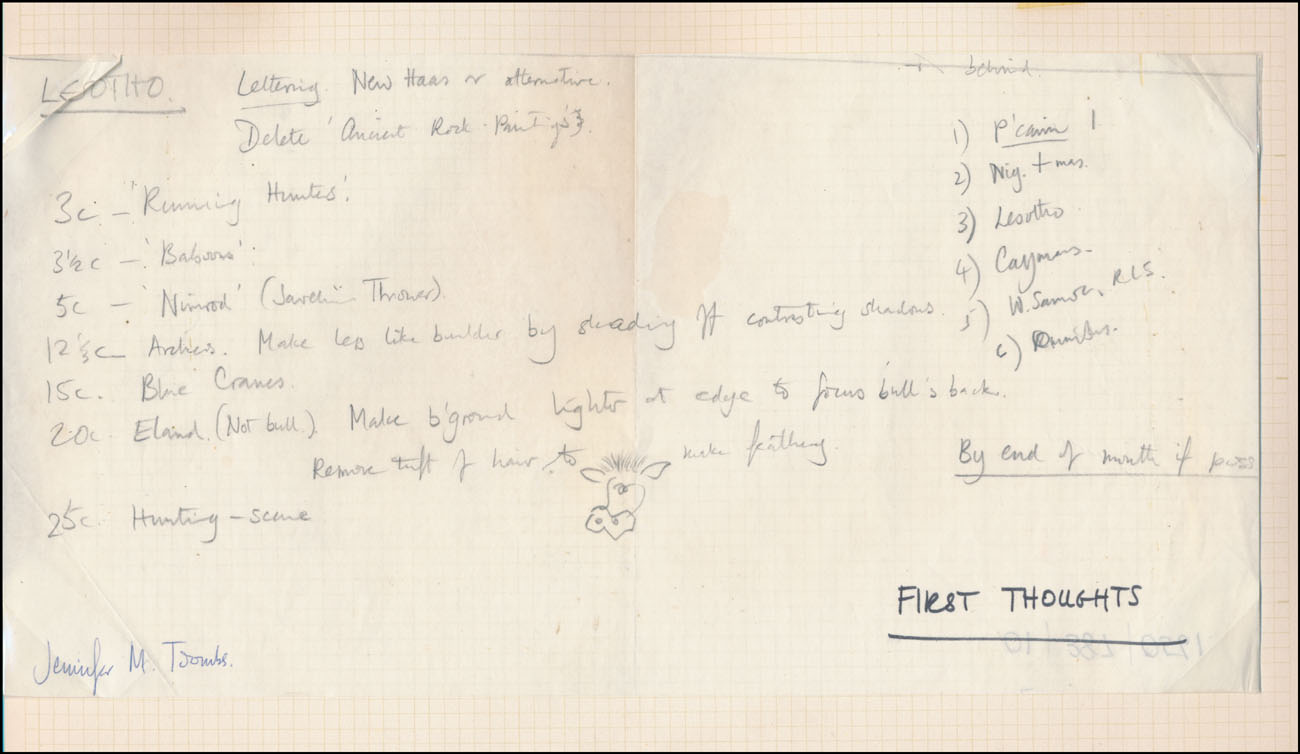 LESOTHO. Lettering. New Haas or alternative.
Delete 'Ancient Rock-Paintings'.
3c. – 'Running Hunters'.
3½c – 'Baboons'.
5c – 'Nimrod' (Javelin Thrower).
12½c – Archers. Make less like builder by shading off contrasting shadows.
15c. Blue Cranes.
20c. Eland. (Not bull.) Make b'ground lighter at edge to focus bull's back.
Remove tuft of hair to make feathery.
25c. Hunting-scene
Jennifer M. Toombs.
behind.
1) P'cairn 1
2) Nig. Xmas.
3) Lesotho
4) Caymans.
5) W. Samoa, R.L.S.
6) Omnibus.
By end of month if poss
FIRST THOUGHTS